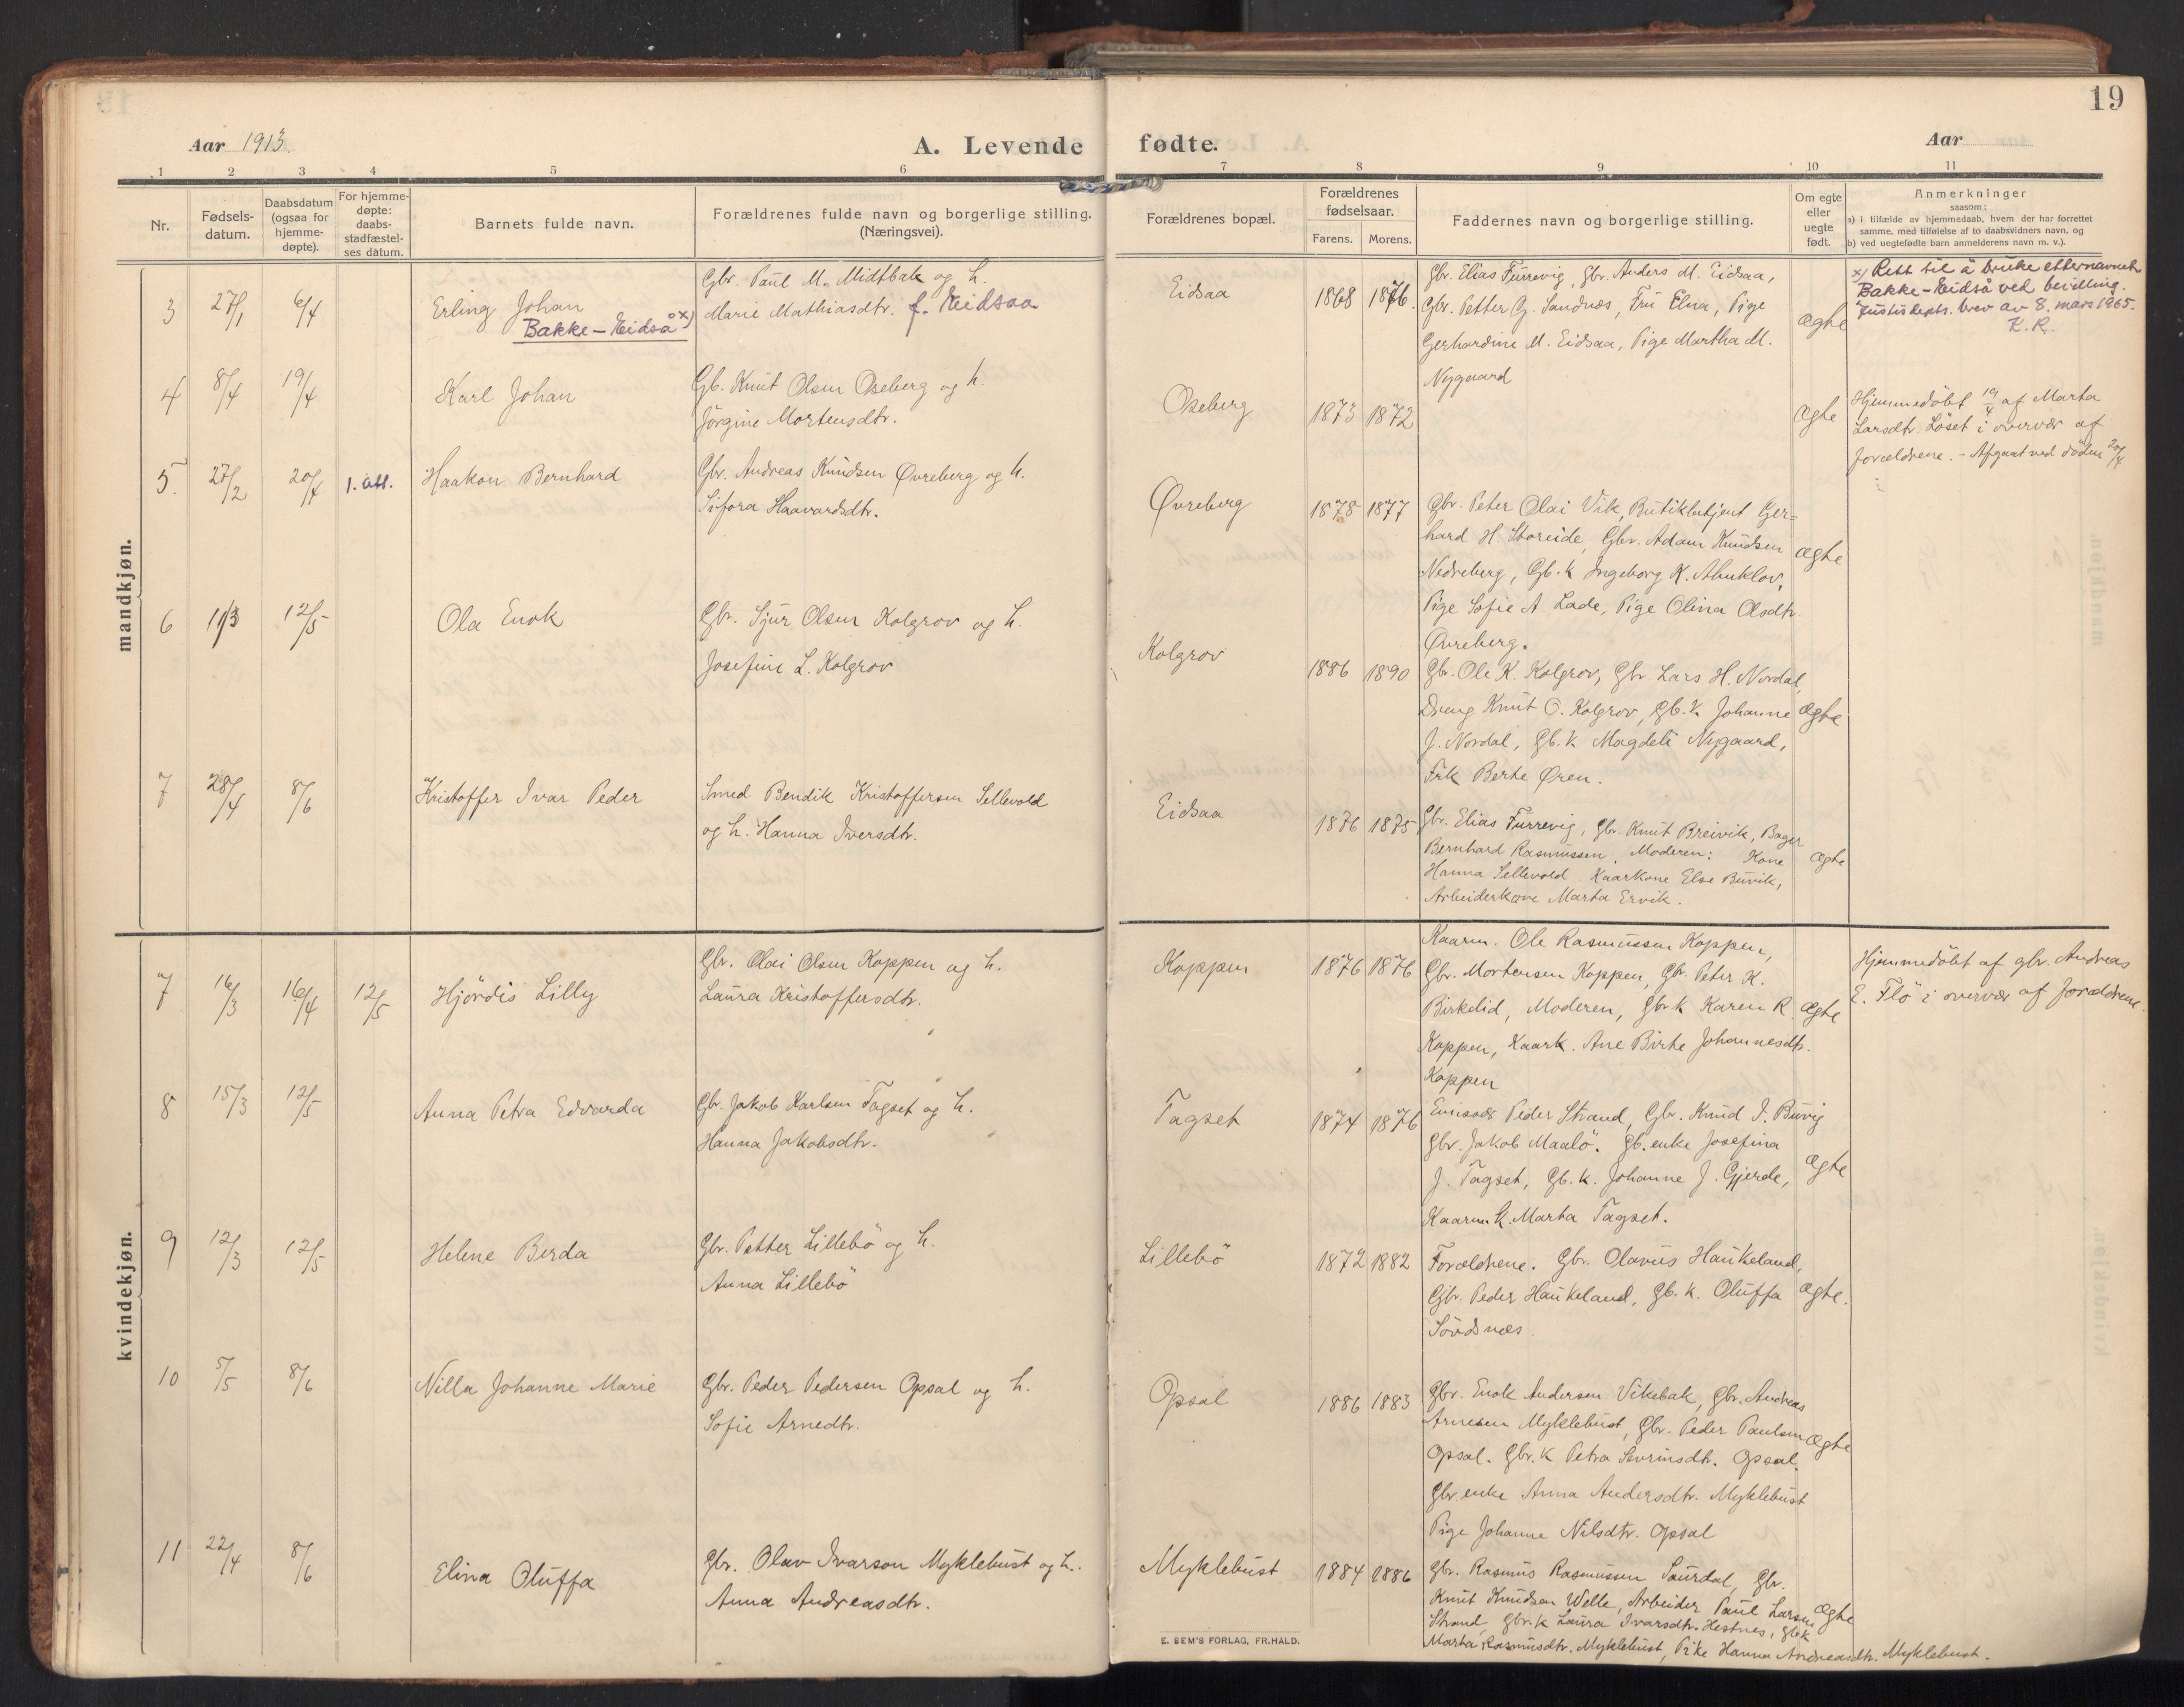 19
Aar 1913.
A. Levende fødte.
Aar
1 2 3 4 5 6 7 8 9 10 11
Nr.
Fødsels-
datum.
Daabsdatum
(ogsaa for
hjemme-
døpte).
For hjemme-
døpte:
daabs-
stadfæstel-
ses datum.
Barnets fulde navn.
Forældrenes fulde navn og borgerlige stilling.
(Næringsvei).
Forældrenes bopæl.
Forældrenes
fødselsaar.
Farens. Morens.
Faddernes navn og borgerlige stilling.
Om egte
eller
uegte
født.
Anmerkninger
saasom:
a) i tilfælde av hjemmedaab, hvem der har forrettet
samme, med tilføielse af to daabsvidners navn, og
b) ved uegtefødte barn anmelderens navn m. v.).
mandkjøn.
3 27/1 6/4
Erling Johan
Bakke-Eidså x)
Gbr. Paul M. Midtbak og h.
Marie Mathiasdtr. f. Eidsaa
Eidsaa
1868 1876.
Gbr. Elias Furrevig, Gbr. Anders M. Eidsaa,
Gbr. Petter G. Sandnæs, Fru Elna, Pige
Gerhardine M. Eidsaa, Pige Martha M.
Nygaard
Ægte
x) Rett til å bruke etternavnet
Bakke-Eidså ved bevilling.
Justisdepts. brev av 8. mars 1965.
K.R.
4 8/4 19/4
Karl Johan
Gb. Knut Olsen Oseberg og h.
Jörgine Mortensdtr.
Oseberg
1873 1872
Ægte
Hjemmedöbt 19/4 af Marta
Larsdtr. Löset i overvær af
forældrene. - Afgaat ved döden 20/4
5. 27/2 20/4 1. att.
Haakon Bernhard
Gbr. Andreas Knudsen Øvreberg og h.
Sifora Haavardsdtr.
Øvreberg
1878 1877
Gbr. Peter Olai Vik, Butikbetjent Ger=
hard H. Storeide, Gbr. Adam Knudsen
Nedreberg, Gb.k Ingeborg K. Almklov,
Pige Sofie A. Lade, Pige Olina Olsdtr.
Øvreberg.
Ægte
6 11/3 12/5
Ola Enok
Gbr. Sjur Olsen Kolgrov og h.
Josefine L. Kolgrov
Kolgrov
1886 1890
Gbr. Ole K. Kolgrov, Gbr. Lars H. Nordal,
Dreng Knut O. Kolgrov, Gb.k Johanne
J. Nordal, Gb.k Magdeli Nygaard,
Frk Berte Øren.
Ægte
7 28/4 8/6
Kristoffer Ivar Peder
Smed Bendik Kristoffersen Sellevold
og h. Hanna Iversdtr.
Eidsaa
1876 1875
Gbr. Elias Furrevig, Gbr. Knut Breivik, Bager
Bernhard Rasmussen. Moderen: Kone
Hanna Sellevold. Kaarkone Else Buvik,
Arbeiderkone Marta Ervik.
Ægte
kvindekjøn.
7 16/3 16/4 12/5
Hjördis Lilly
Gbr. Olai Olsen Koppen og h.
Laura Kristoffersdtr.
Koppen
1876 1876
Kaarm. Ole Rasmussen Koppen,
Gbr. Mortensen Koppen, Gbr. Peter K.
Birkelid, Moderen, Gbr.k Karen R.
Koppen, Kaark. Ane Birte Johannesdtr.
Koppen
Ægte
Hjemmedöbt af gbr. Andreas
E. Flö i overvær af forældrene.
8 15/3 12/5
Anna Petra Edvarda
Gbr. Jakob Karlsen Tagset og h.
Hanna Jakobsdtr.
Tagset
1874 1876
Emissær Peder Strand, Gbr. Knud I. Buvig
Gbr. Jakob Maalö. Gb. enke Josefina
J. Tagset, Gb. k. Johanne J. Gjerde,
Kaarm k. Marta Tagset.
Ægte
9 12/3 12/5
Helene Berda
Gbr. Petter Lillebö og h.
Anna Lillebö
Lillebö
1872 1882
Forældrene. Gbr. Olavus Haukeland,
Gbr. Peder Haukeland, Gb. k. Oluffa
Sördsnes.
Ægte.
10 5/5 8/6
Nilla Johanne Marie
Gbr. Peder Pedersen Opsal og h.
Sofie Arnedtr.
Opsal
1886 1883
Gbr. Enok Andersen Vikebak, Gbr. Andreas
Arnesen Myklebust, Gbr. Peder Paulsen
Opsal. Gbr.k Petra Sevrinsdtr. Opsal.
Gbr enke Anna Andersdtr. Myklebust
Pige Johanne Nilsdtr. Opsal
Ægte
11 22/4 8/6
Elina Oluffa
Gbr. Olav Ivarson Myklebust og h.
Anna Andreasdtr.
Myklebust
1884 1886
Gbr. Rasmus Rasmussen Saurdal, Gbr.
Knut Knudsen Welle, Arbeider Paul Larsen
Strand, Gbr.k Laura Ivarsdtr. Hestnes, Gb.k
Marta Rasmusdtr. Myklebust, Pike Hanna Andreasdtr. Myklebust.
Ægte
E. SEM'S FORLAG, FR.HALD.